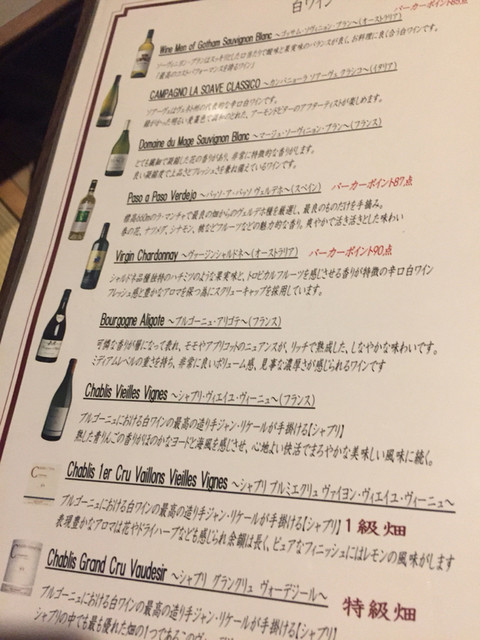 白ワイン
Wine Men of Gotham Sauvignon Blanc ～ゴッサム・ソーヴィニョン・ブラン～(オーストラリア) パーカーポイント85点
ソーヴィニヨン・ブランはスッキリとした口当たりで酸味と果実味のバランスが良く、お料理に良く合う白ワインです。
「最高のコストパフォーマンスを誇るワイン」
CAMPAGNO LA SOAVE CLASSICO ～カンパニョーラ ソアーヴェ クラシコ～(イタリア)
ソアーヴェはヴェネト州の代表的な辛口白ワインです。
輝かかった明るい麦藁色で温和のとれた、アーモンドビターのアフターテイストが楽しめます。
Domaine du Mage Sauvignon Blanc ～マージュ・ソーヴィニョン・ブラン～(フランス)
とても繊細で凝縮した花の香りがあり、非常に特徴的な香りがします。
良い凝縮度で上品さとフレッシュさを兼ね備えているワインです。
Paso a Paso Verdejo ～パッソ・ア・パッソ ヴェルデホ～(スペイン) パーカーポイント87点
標高660mのラ・マンチャで最良の畑からのヴェルデホ種を厳選し、最良のものだけを手摘み。
春の花、ナツメグ、シナモン、桃などフルーツなどの魅力的な香り。爽やかで活き活きとした味わい
Virgin Chardonnay ～ヴァージンシャルドネ～(オーストラリア) パーカーポイント90点
シャルドネ品種独特のハチミツのような果実味と、トロピカルフルーツを感じさせる香りが特徴の辛口白ワイン
フレッシュ感と豊かなアロマを保つ為にスクリューキャップを採用しています。
Bourgogne Aligote ～ブルゴーニュ・アリゴテ～(フランス)
可憐な香りが層になって表れ、モモやアプリコットのニュアンスが、リッチで熟成した、しなやかな味わいです。
ミディアムレベルの重さを持ち、非常に良いボリューム感、見事な濃厚さが感じられるワインです
Chablis Vieilles Vignes ～シャブリ・ヴィエイユ・ヴィーニュ～(フランス)
ブルゴーニュにおける白ワインの最高の造り手ジャン・リケールが手掛ける【シャブリ】
熟した青りんごの香りがほのかなヨードと海風を感じさせ、心地よい快活でまろやかな美味しい風味に続く。
Chablis 1er Cru Vaillons Vieilles Vignes ～シャブリ プルミエクリュ ヴァイヨン・ヴィエイユ・ヴィーニュ～
ブルゴーニュにおける白ワインの最高の造り手ジャン・リケールが手掛ける【シャブリ】 1級畑
表現豊かなアロマは花やドライハーブなども感じられ余韻は長く、ピュアなフィニッシュにはレモンの風味がします
Chablis Grand Cru Vaudesir ～シャブリ グランクリュ ヴォーデジール～
ブルゴーニュにおける白ワインの最高の造り手ジャン・リケールが手掛ける【シャブリ】 特級畑
シャブリの中でも最も優れた畑の1つであるこのヴ